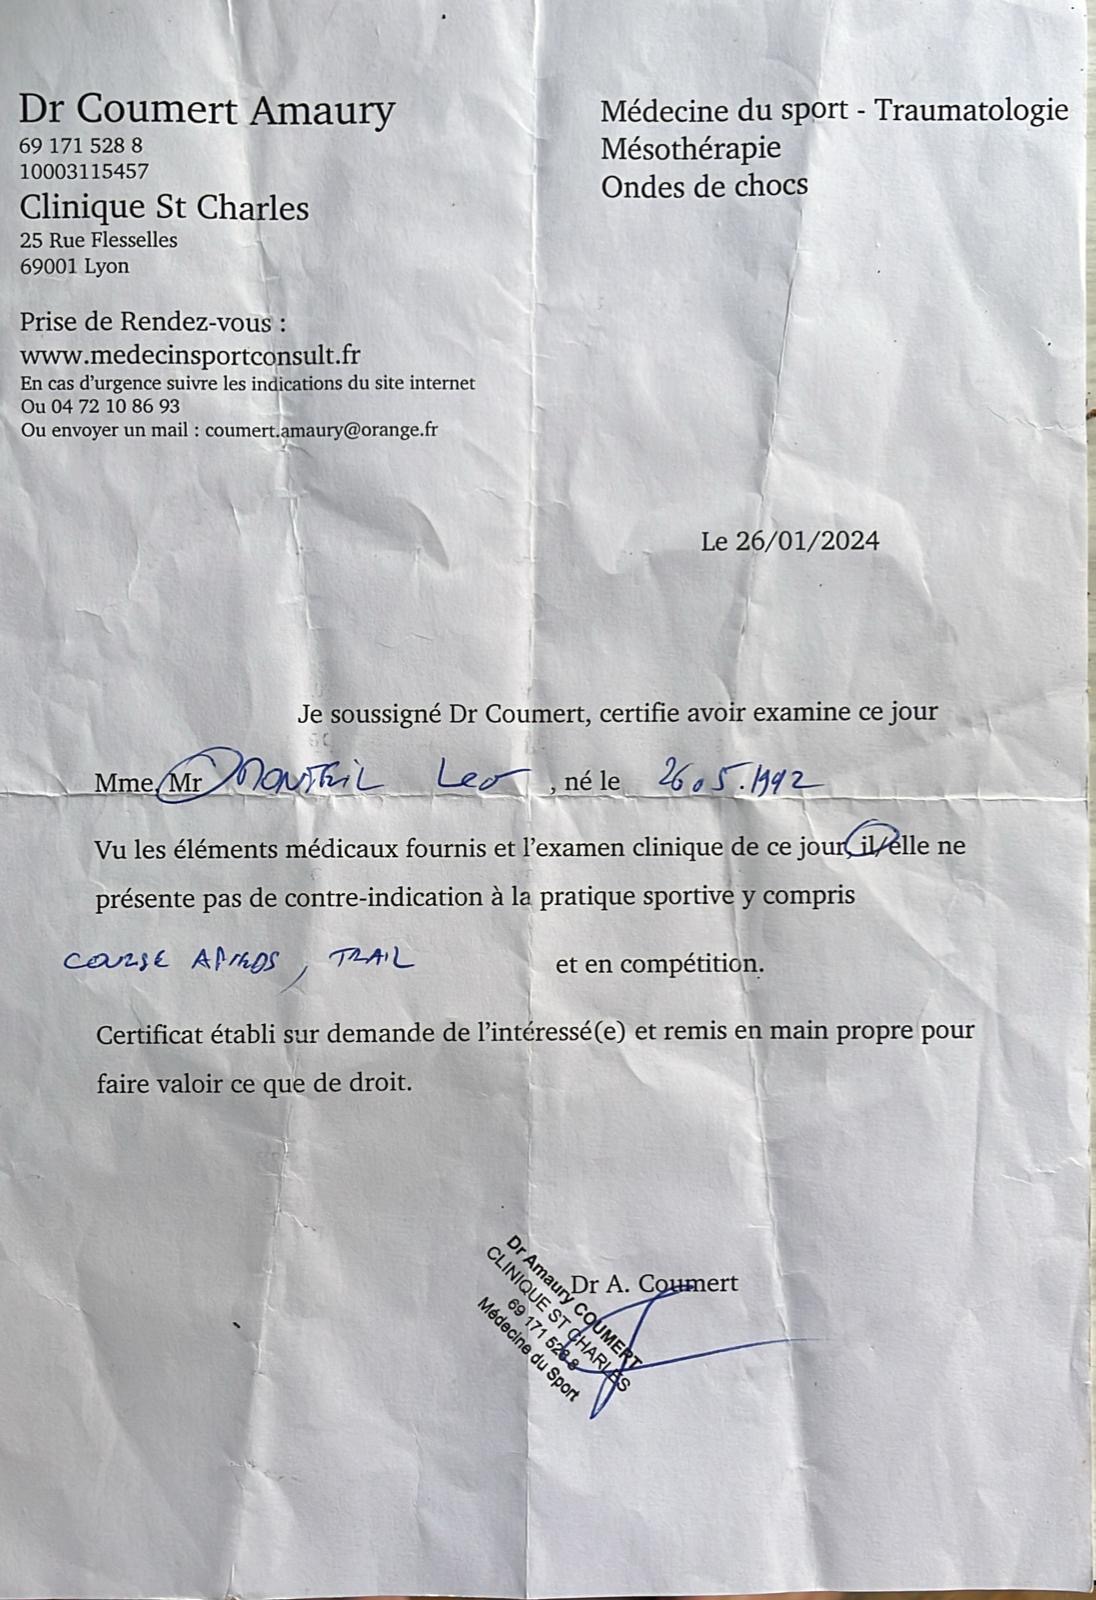 Dr Coumert Amaury
69 171 528 8
10003115457
Clinique St Charles
25 Rue Flesselles
69001 Lyon
Prise de Rendez-vous :
www.medecinsportconsult.fr
En cas d'urgence suivre les indications du site internet
Ou 04 72 10 86 93
Ou envoyer un mail : coumert.amaury@orange.fr
Médecine du sport - Traumatologie
Mésothérapie
Ondes de chocs
Le 26/01/2024
Je soussigné Dr Coumert, certifie avoir examine ce jour
Mme, Mr Leo , né le 26.05.1992
Vu les éléments médicaux fournis et l'examen clinique de ce jour, il/elle ne
présente pas de contre-indication à la pratique sportive y compris
COURSE APIEDS, TRAIL et en compétition.
Certificat établi sur demande de l'intéressé(e) et remis en main propre pour
faire valoir ce que de droit.
Dr A. Coumert
Dr Amaury COUMERT
CLINIQUE ST CHARLES
69 171 528 8
Médecine du Sport